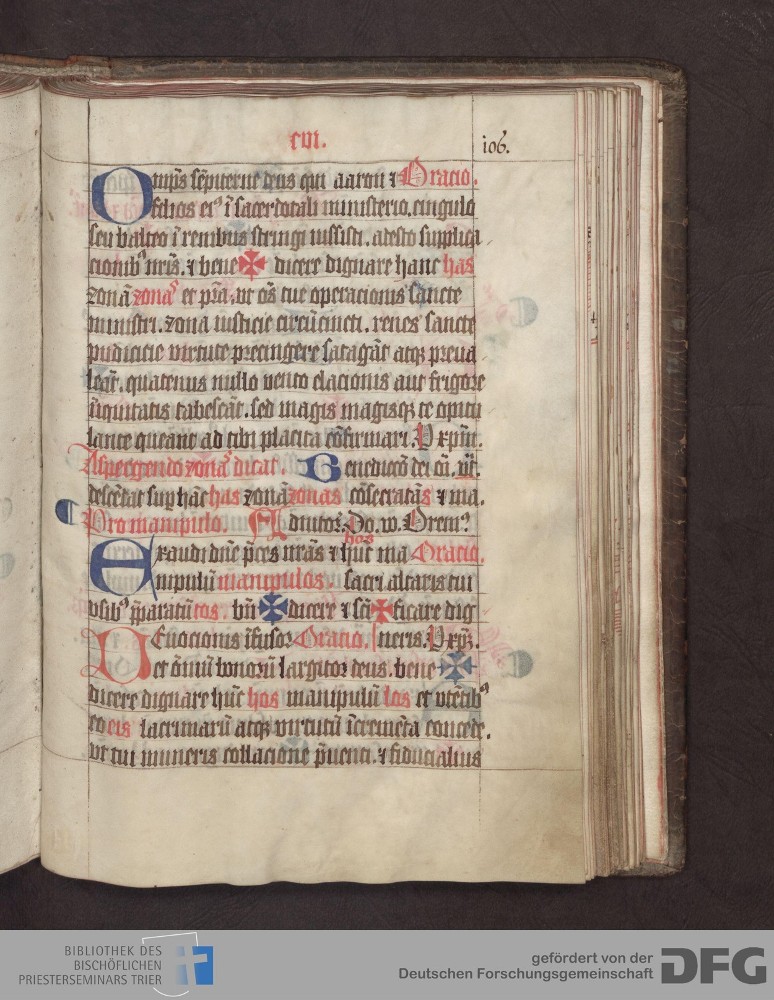 cvi.
106.
Omps̄ sēpiterne deus qui aaron ⁊ Oracio.
filios eiꝰ ī sacerdotali ministerio. cingulo
seu balteo ī renibus stringi iussisti. adesto supplica
cionibꝰ nrīs. ⁊ bene✠ dicere dignare hanc has
zonā zonaˢ et pr̄a. ut oēs tue operacionis sancte
ministri. zona iusticie circūcincti. renes sancte
pudicicie virtute precingere satagāt atqꝫ preua
leāt. quatenus nullo vento elacionis aut frigore
iniquitatis tabescāt. sed magis magisqꝫ te opitu
lante queānt ad tibi placita cōfirmari. P xpm̄.
Aspergendo zonaˢ dicat. Benediccō dei oī. prīs.
descēdat sup hāc has zonā zonas cōsecratās ⁊ ma.
Pro manipulo. Adiutoꝝ. Do. vo. Oremꝰ
hos
Exaudi dn̄e p̄ces nrās ⁊ hūc ma Oracio.
nipulū manipulos. sacri altaris tui
vsibꝰ p̄paratū tos. bn̄✠dicere ⁊ scī✠ficare dig
Deuocionis īfusoꝛ Oracio. neris. P xp̄m.
et oīniū bonorū largitor deus. bene✠
dicere dignare hūc hos manipulū los et vtētibꝰ
eo eis lacrimarū atqꝫ virtutū īcremēta concede.
vt tui muneris collacione p̄uenti. ⁊ fiducialius
BIBLIOTHEK DES
BISCHÖFLICHEN
PRIESTERSEMINARS TRIER
gefördert von der
Deutschen Forschungsgemeinschaft DFG